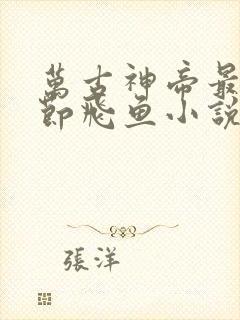 萬古神帝最
節飛魚小說
張洋